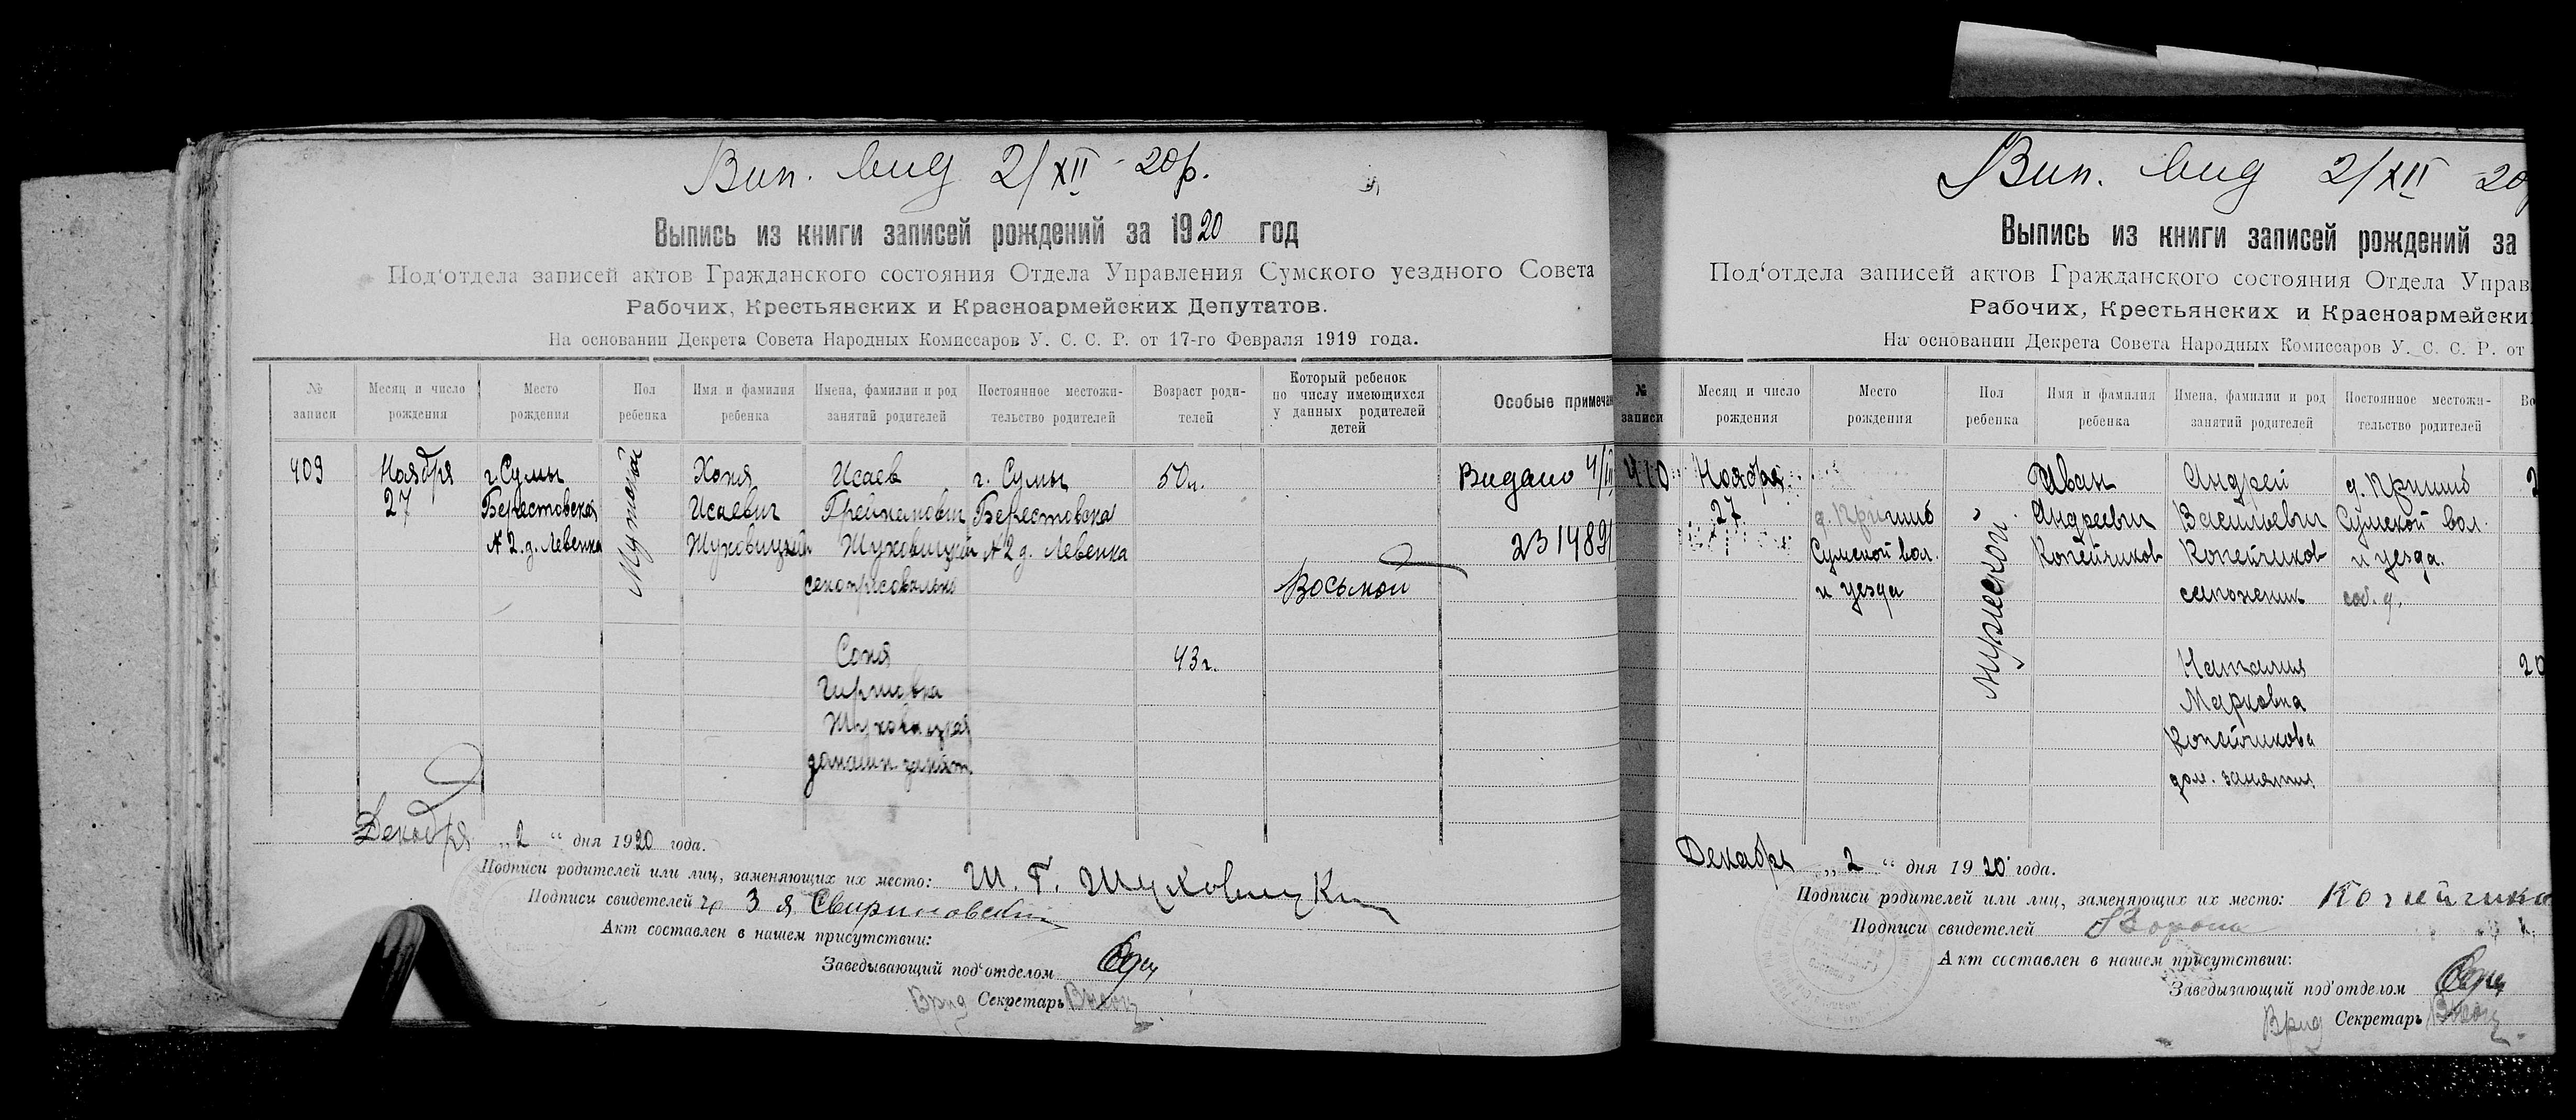 Вип. вид 2/XII - 20р.
Выпись из книги записей рождений за 1920 год
Под‘отдела записей актов Гражданского состояния Отдела Управления Сумского уездного Совета
Рабочих, Крестьянских и Красноармейских Депутатов.
На основании Декрета Совета Народных Комиссаров У. С. С. Р. от 17-го Февраля 1919 года.
№ записи
Месяц и число рождения
Место рождения
Пол ребенка
Имя и фамилия ребенка
Имена, фамилии и род занятий родителей
Постоянное местожительство родителей
Возраст родителей
Который ребенок по числу имеющихся у данных родителей детей
Особые примечан
409
Ноября
27
г. Сумы
Берестовская
№ 2. д. Левенка
Мужской
Хоня
Исаевич
Жуховицкий
Исаев
Жуховицкий
г. Сумы
Берестовская
№ 2 д. Левенка
50л.
Восьмой
Видано 4/
2314891
Соня
Гиршовна
Жуховицкая
43г.
Декабря „ 2 “ дня 1920 года.
Подписи родителей или лиц, заменяющих их место: Ш. Г. Шуховицки
Подписи свидетелей
Акт составлен в нашем присутствии:
Заведывающий под‘отделом
Врид Секретарь
Вип. вид 2/XII - 20
Выпись из книги записей рождений за
Под‘отдела записей актов Гражданского состояния Отдела Управ
Рабочих, Крестьянских и Красноармейски
На основании Декрета Совета Народных Комиссаров У. С. С. Р. от
№ записи
Месяц и число рождения
Место рождения
Пол ребенка
Имя и фамилия ребенка
Имена, фамилии и род занятий родителей
Постоянное местожительство родителей
Во
410
Ноября
27
Сумской вол.
и уезда
мужеской
Иван
Андреевич
Копейчиков
Андрей
Васильевич
Копейчиков
сапожник
Сумской вол.
и уезда.
соб. д.
2
Наталия
Марковна
Копейчикова
дом. занятия
20
Декабрь „ 2 “ дня 1920 года.
Подписи родителей или лиц, заменяющих их место: Копейчико
Подписи свидетелей
Акт составлен в нашем присутствии:
Заведывающий под‘отделом
Врид Секретарь